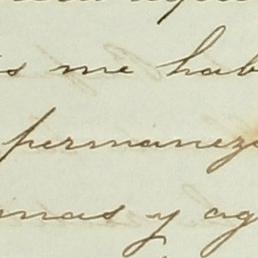 s me hab
permanez
mas y ag